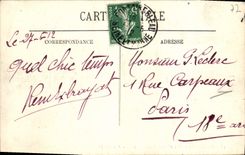 CARTE POSTALE
CORRESPONDANCE
ADRESSE
Le 27-6-12
quel chic temps
Monsieur Préclere
1 Rue Carpeaux
Paris
18e arr